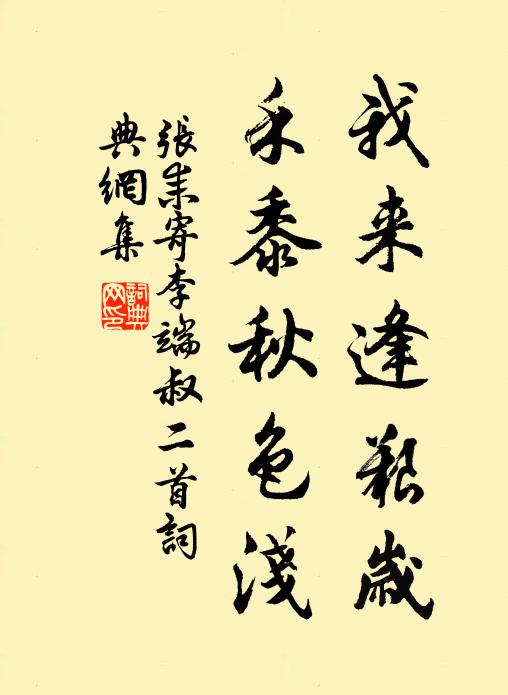 我来逢艱歲
禾黍秋色淺
張耒寄李端叔二首詞
典網集
詞典網印